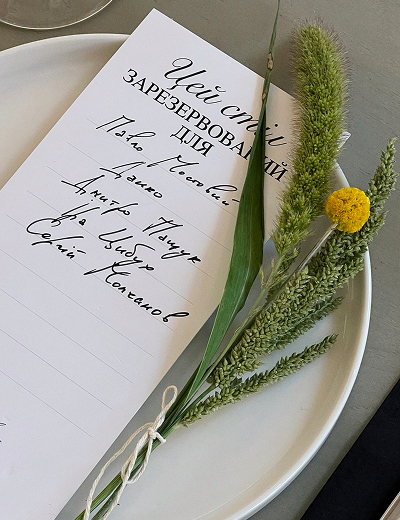 Цей стіл
ЗАРЕЗЕРВОВАНИЙ
ДЛЯ
Павло Московий
Данко
Дмітро Пащук
Іра Цибух
Сергій Молчанов